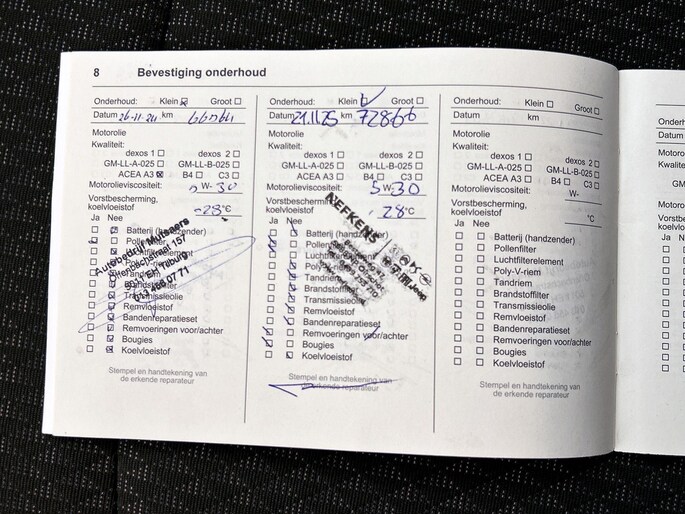 8 Bevestiging onderhoud
Onderhoud: Klein Groot
Datum 26-11-24 km 66064
Motorolie
Kwaliteit:
dexos 1 dexos 2
GM-LL-A-025 GM-LL-B-025
ACEA A3 B4 C3
Motorolieviscositeit: 5 W- 30
Vorstbescherming,
koelvloeistof -28 °C
Ja Nee
Batterij (handzender)
Pollenfilter
Tandriem
Brandstoffilter
Transmissieolie
Remvloeistof
Bandenreparatieset
Remvoeringen voor/achter
Bougies
Koelvloeistof
Autobedrijf Mutsaers
Offenbachstraat 157
Tilburg
013 455 07 71
Stempel en handtekening van
de erkende reparateur
Onderhoud: Klein Groot
Datum 21.11.25 km 72866
Motorolie
Kwaliteit:
dexos 1 dexos 2
GM-LL-A-025 GM-LL-B-025
ACEA A3 B4 C3
Motorolieviscositeit: 5 W- 30
Vorstbescherming,
koelvloeistof 28 °C
Ja Nee
Batterij (handzender)
Pollenfilter
Luchtfilterelement
Poly-V-riem
Tandriem
Brandstoffilter
Transmissieolie
Remvloeistof
Bandenreparatieset
Remvoeringen voor/achter
Bougies
Koelvloeistof
NEFKENS
Jeep
Stempel en handtekening van
de erkende reparateur
Onderhoud: Klein Groot
Datum km
Motorolie
Kwaliteit:
dexos 1 dexos 2
GM-LL-A-025 GM-LL-B-025
ACEA A3 B4 C3
Motorolieviscositeit: W-
Vorstbescherming,
koelvloeistof °C
Ja Nee
Batterij (handzender)
Pollenfilter
Luchtfilterelement
Poly-V-riem
Tandriem
Brandstoffilter
Transmissieolie
Remvloeistof
Bandenreparatieset
Remvoeringen voor/achter
Bougies
Koelvloeistof
Stempel en handtekening van
de erkende reparateur